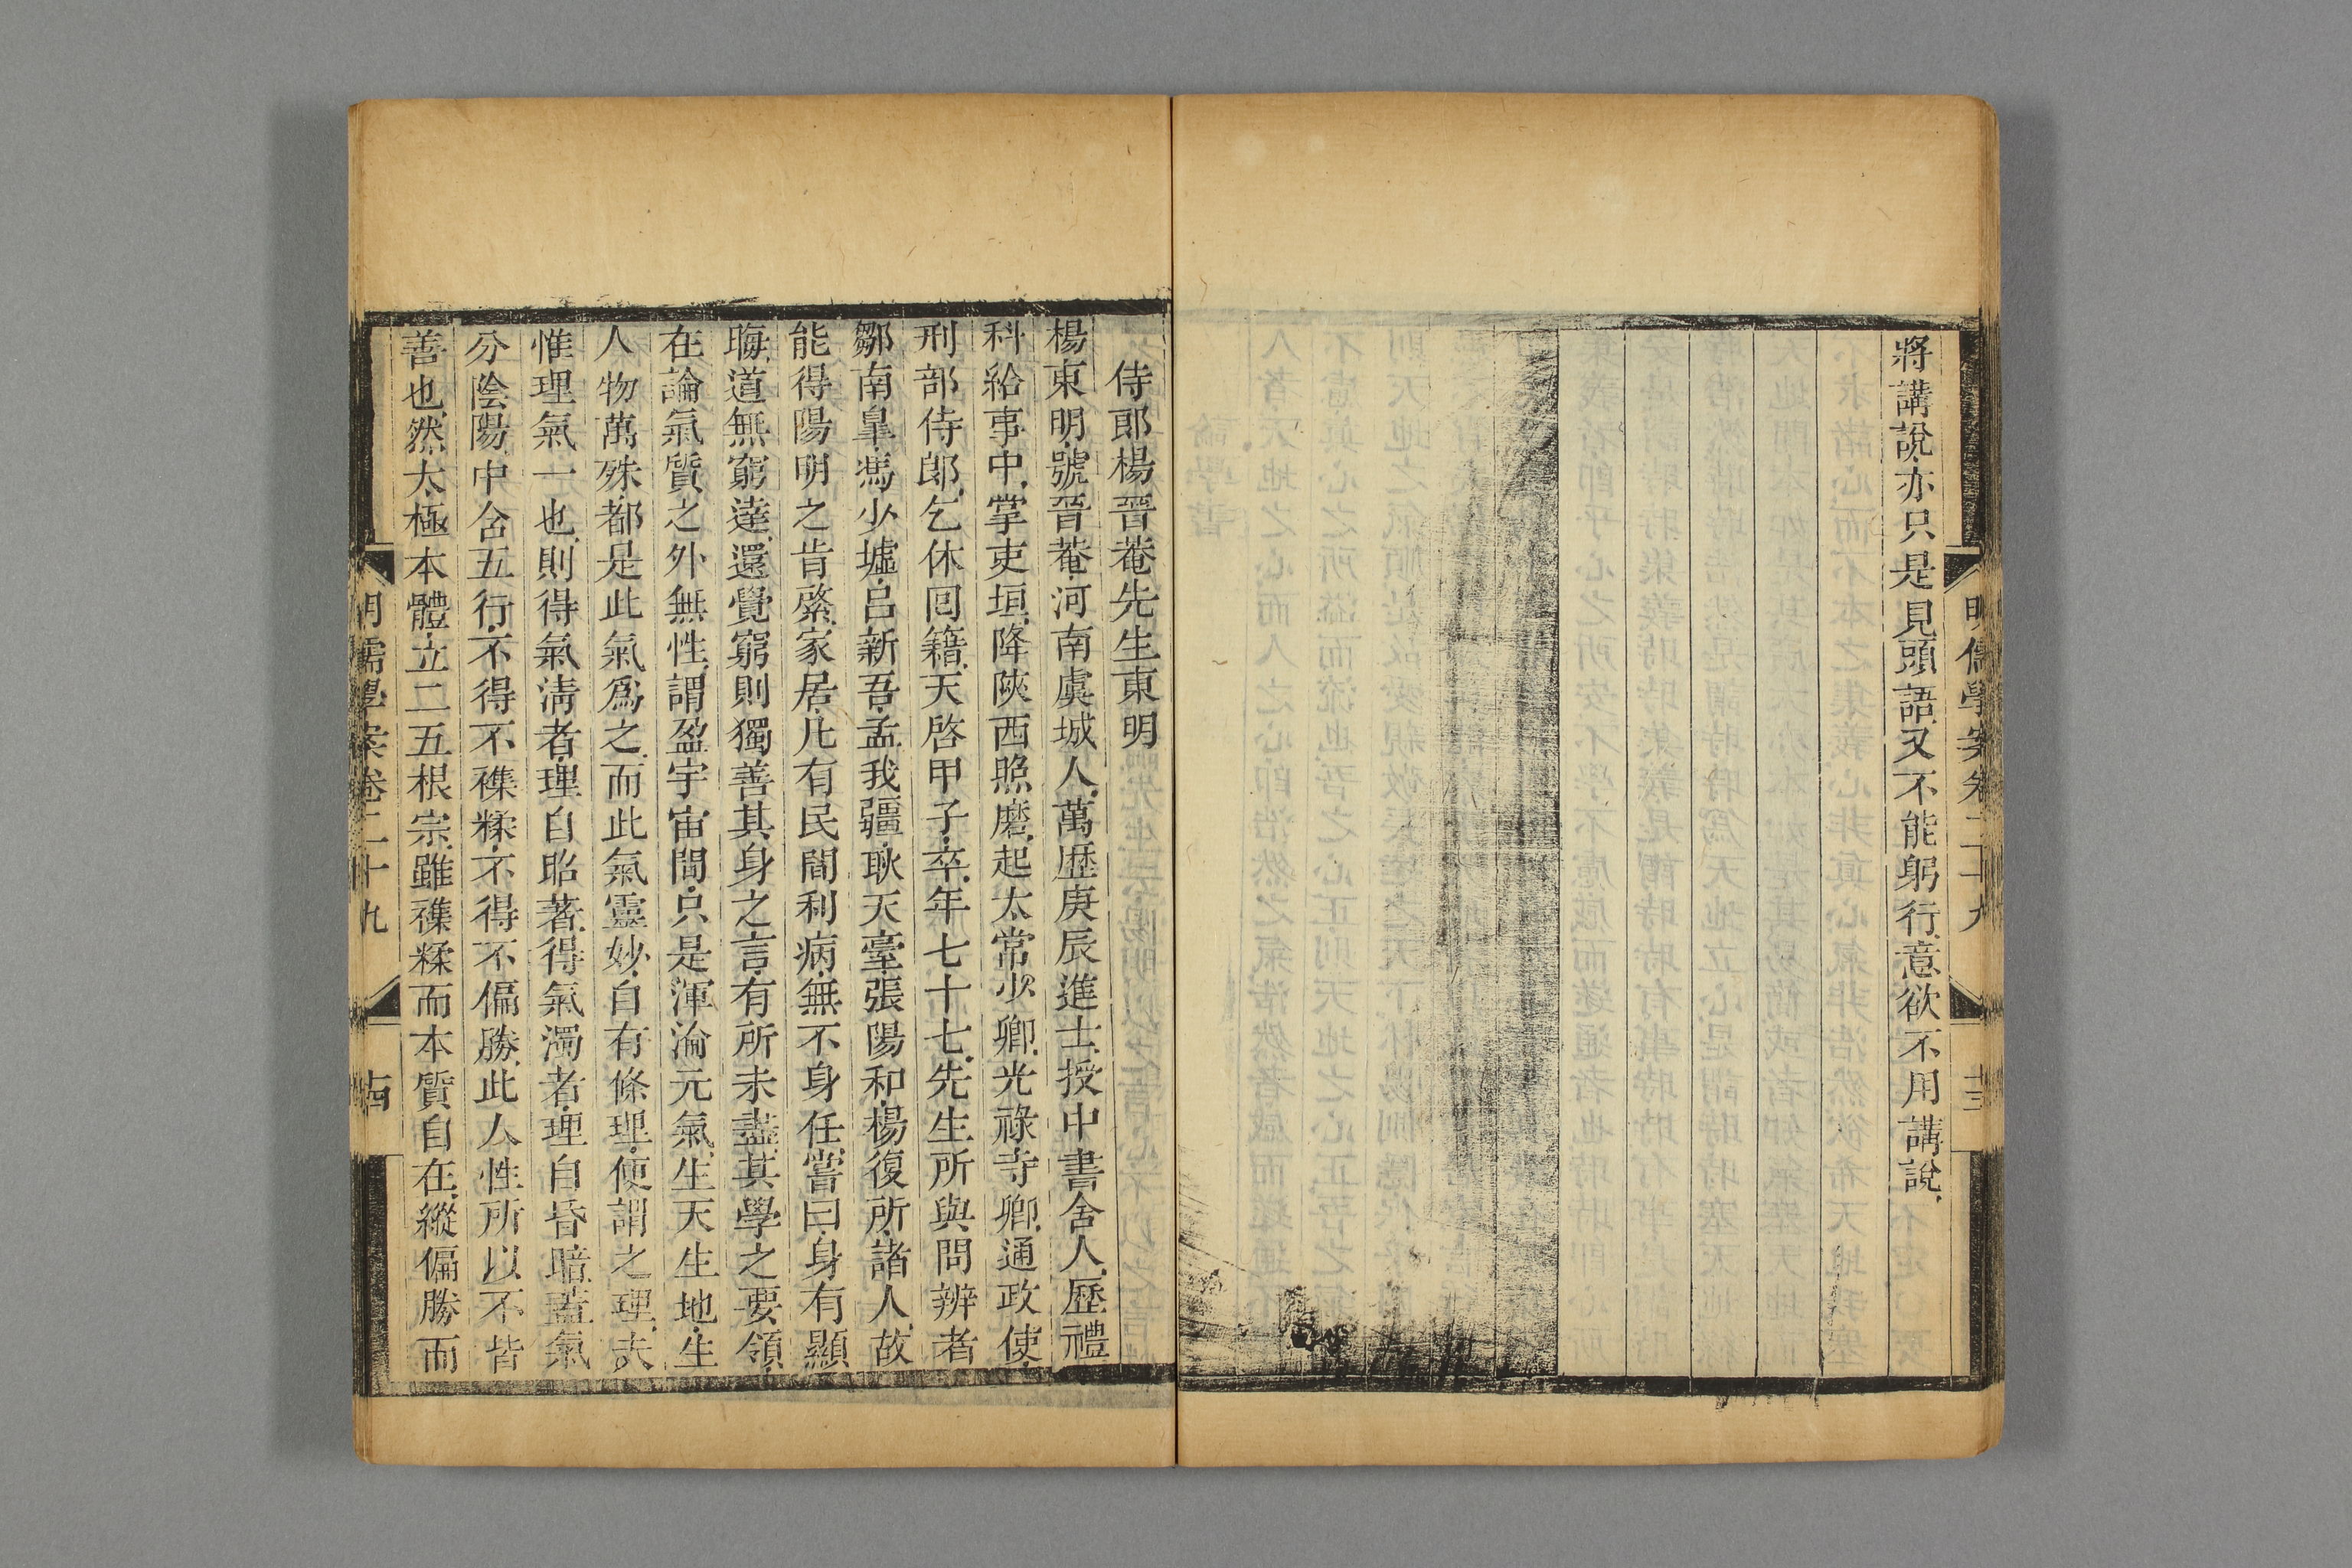 將講說亦只是見頭語又不能躬行意欲不用講說
明儒學案卷二十九
十三
侍郎楊晉菴先生東明
楊東明號晉菴河南虞城人萬歷庚辰進士授中書舍人歷禮
科給事中掌吏垣降陝西照磨起太常少卿光祿寺卿通政使
刑部侍郎乞休回籍天啓甲子卒年七十七先生所與問辨者
鄒南臯馮少墟呂新吾孟我疆耿天臺張陽和楊復所諸人故
能得陽明之肯綮家居凡有民間利病無不身任嘗曰身有顯
晦道無窮達還覺窮則獨善其身之言有所未盡其學之要領
在論氣質之外無性謂盈宇宙間只是渾淪元氣生天生地生
人物萬殊都是此氣爲之而此氣靈妙自有條理便謂之理夫
惟理氣一也則得氣清者理自昭著得氣濁者理自昏暗蓋氣
分陰陽中含五行不得不襍糅不得不偏勝此人性所以不皆
善也然太極本體立二五根宗雖襍糅而本質自在縱偏勝而
明儒學案卷二十九
十四